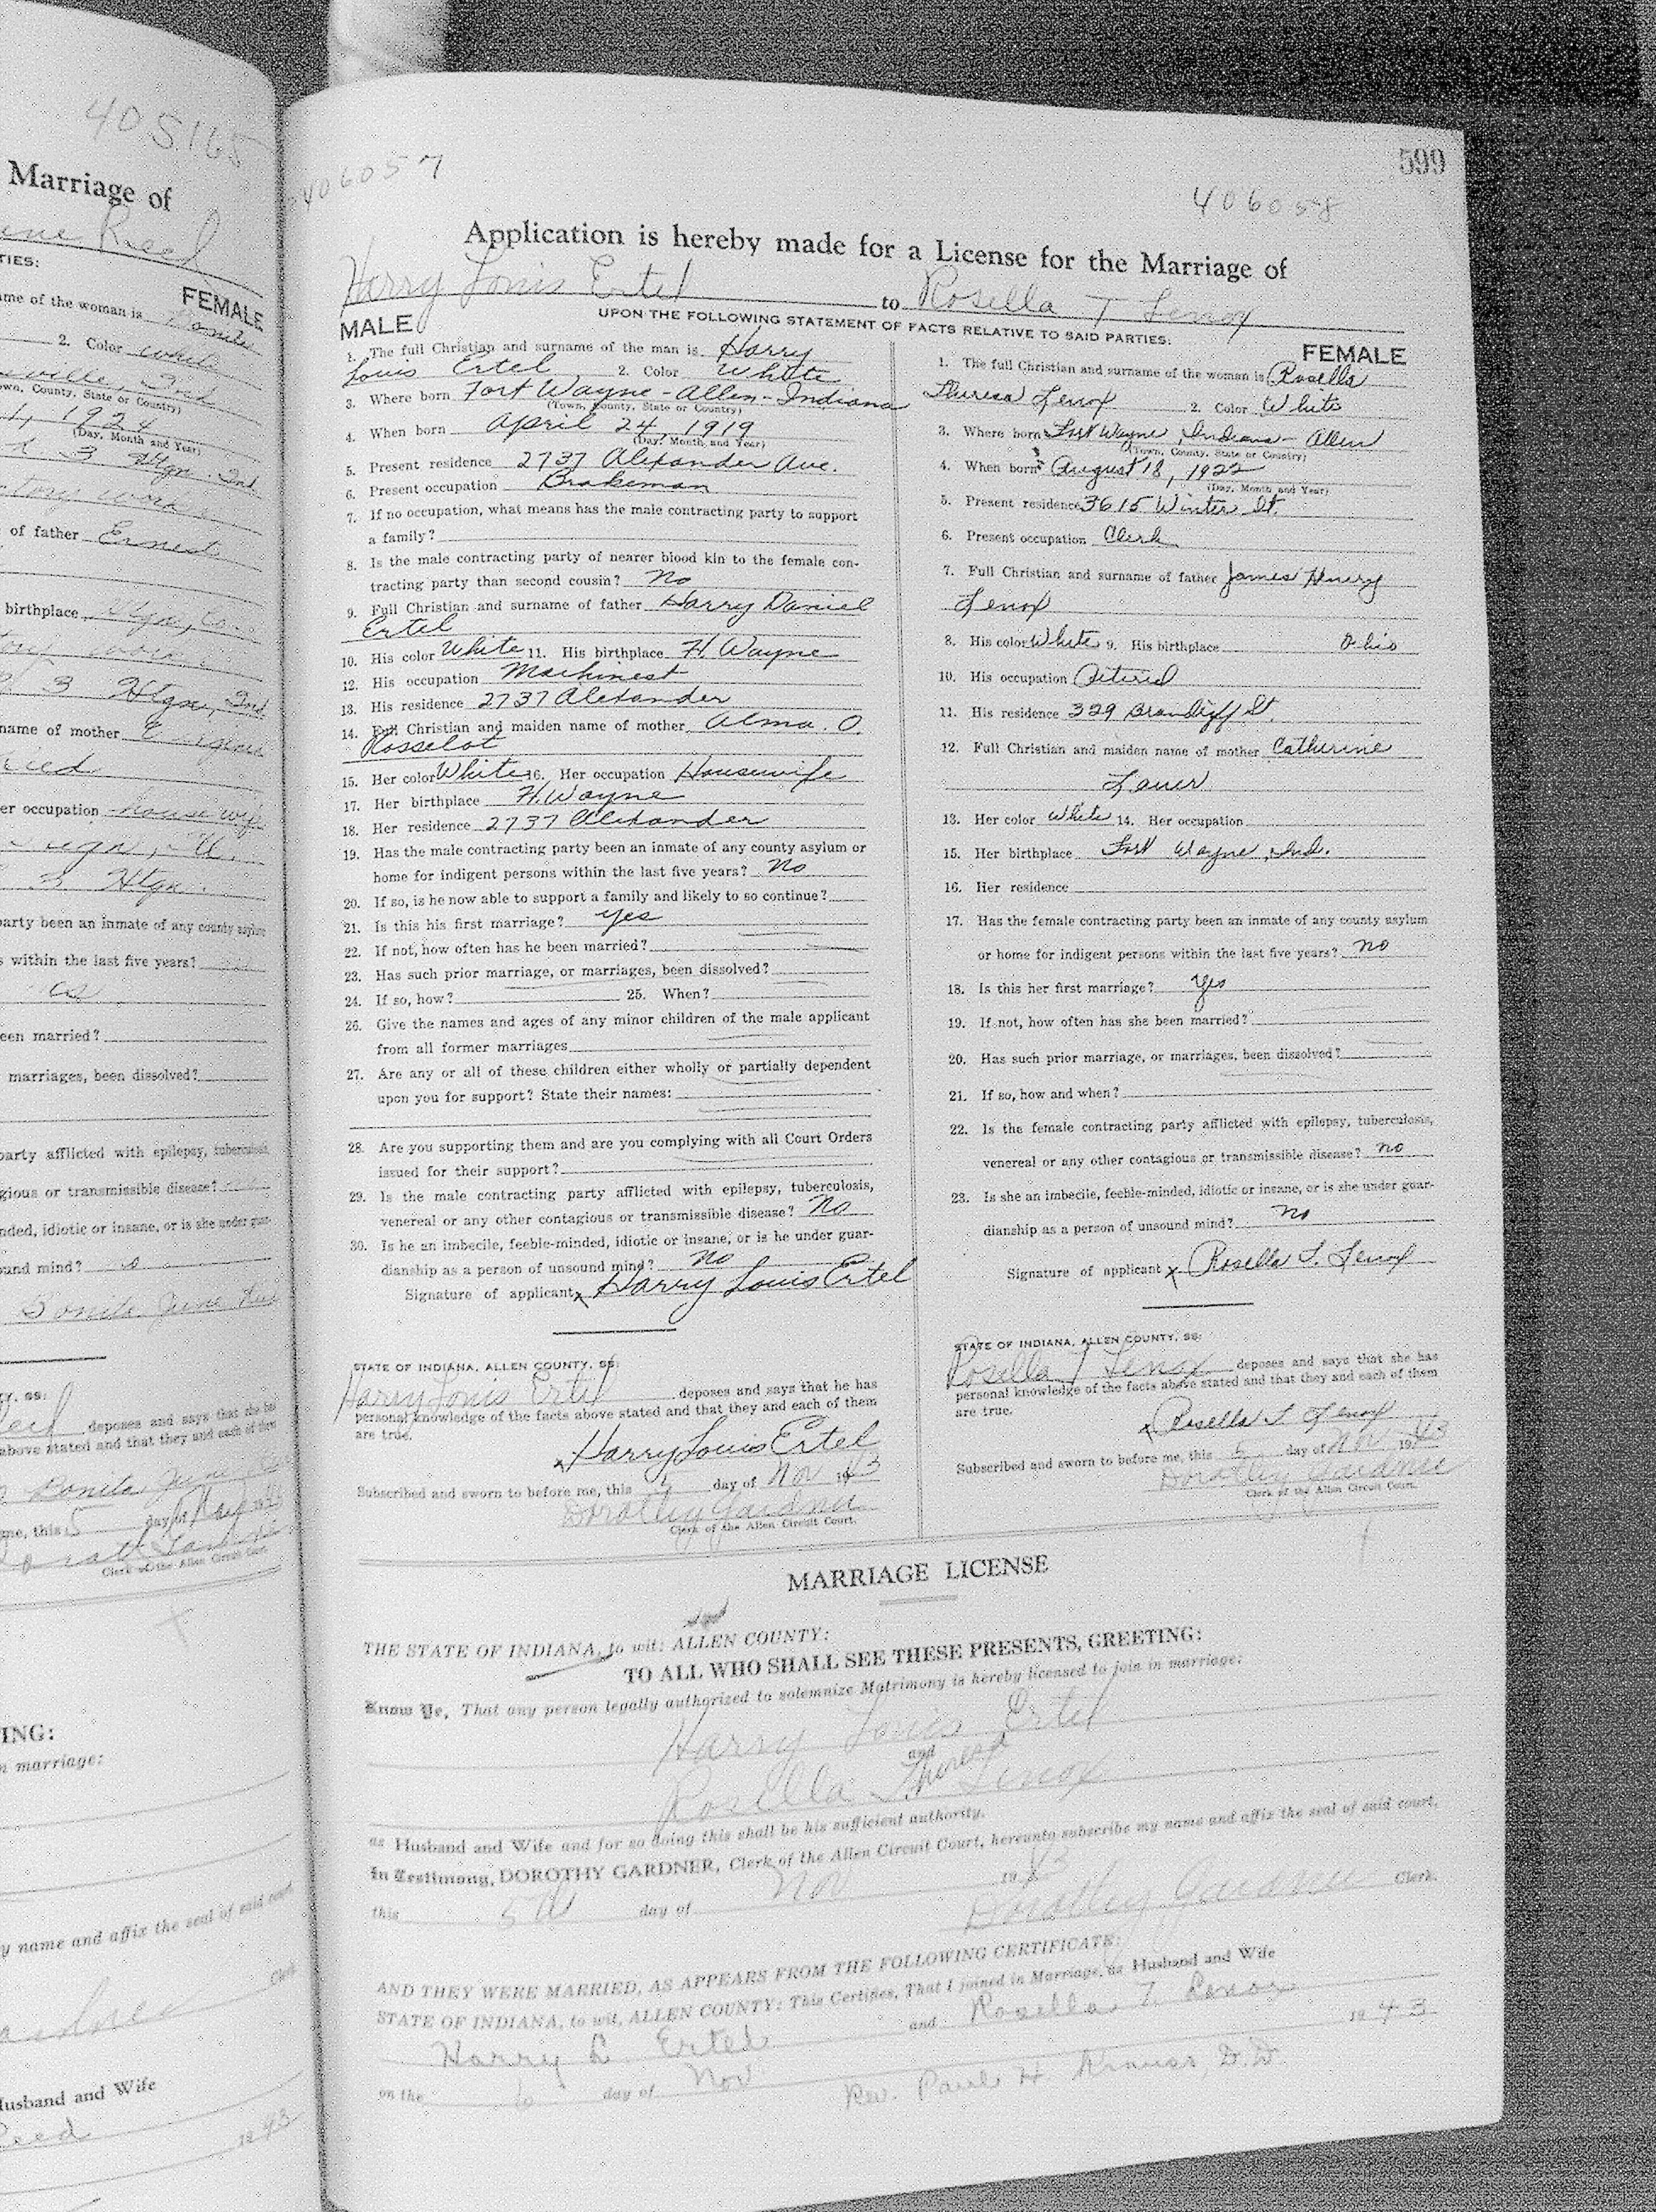 405165
Marriage of
Reed
TIES:
FEMALE
ame of the woman is
2. Color white
ville, Ind
own, County, State or Country)
1, 1924
(Day, Month and Year)
3 Htgn. Ind.
of father Ernest
birthplace
3 Htgn, Ind.
name of mother
er occupation housewife
3 Htgn.
party been an inmate of any county asylum
s within the last five years?
een married?
marriages, been dissolved?
party afflicted with epilepsy, tuberculosis,
gious or transmissible disease?
nded, idiotic or insane, or is she under guar-
ound mind?
Bonita June
Y, SS:
deposes and says that she has
above stated and that they and each of them
Bonita June
me, this 5 day of
Clerk of the Allen Circuit Court.
ING:
n marriage:
y name and affix the seal of said court
Clerk
Husband and Wife
Reed
1943
599
406057
406058
Application is hereby made for a License for the Marriage of
Harry Louis Ertel to Rosella T Lenox
UPON THE FOLLOWING STATEMENT OF FACTS RELATIVE TO SAID PARTIES:
MALE
1. The full Christian and surname of the man is Harry
Louis Ertel 2. Color White
3. Where born Fort Wayne - Allen - Indiana
(Town, County, State or Country)
4. When born April 24, 1919
(Day, Month and Year)
5. Present residence 2737 Alexander Ave.
6. Present occupation Brakeman
7. If no occupation, what means has the male contracting party to support
a family?
8. Is the male contracting party of nearer blood kin to the female con-
tracting party than second cousin? No
9. Full Christian and surname of father Harry Daniel
Ertel
10. His color White 11. His birthplace Ft. Wayne
12. His occupation Machinest
13. His residence 2737 Alexander
14. Full Christian and maiden name of mother Alma. O.
Rosselot
15. Her color White 16. Her occupation Housewife
17. Her birthplace Ft. Wayne
18. Her residence 2737 Alexander
19. Has the male contracting party been an inmate of any county asylum or
home for indigent persons within the last five years? No
20. If so, is he now able to support a family and likely to so continue?
21. Is this his first marriage? yes
22. If not, how often has he been married?
23. Has such prior marriage, or marriages, been dissolved?
24. If so, how? 25. When?
26. Give the names and ages of any minor children of the male applicant
from all former marriages
27. Are any or all of these children either wholly or partially dependent
upon you for support? State their names:
28. Are you supporting them and are you complying with all Court Orders
issued for their support?
29. Is the male contracting party afflicted with epilepsy, tuberculosis,
venereal or any other contagious or transmissible disease? No
30. Is he an imbecile, feeble-minded, idiotic or insane, or is he under guar-
dianship as a person of unsound mind? No
Signature of applicant x Harry Louis Ertel
STATE OF INDIANA, ALLEN COUNTY, SS:
Harry Louis Ertel deposes and says that he has
personal knowledge of the facts above stated and that they and each of them
are true.
x Harry Louis Ertel
Subscribed and sworn to before me, this 5 day of Nov 1943
Dorothy Gardner
Clerk of the Allen Circuit Court.
FEMALE
1. The full Christian and surname of the woman is Rosella
Theresa Lenox 2. Color White
3. Where born Fort Wayne, Indiana - Allen
(Town, County, State or Country)
4. When born August 18, 1922
(Day, Month and Year)
5. Present residence 3615 Winter St.
6. Present occupation Clerk
7. Full Christian and surname of father James Henry
Lenox
8. His color White 9. His birthplace Ohio
10. His occupation Retired
11. His residence 329 St.
12. Full Christian and maiden name of mother Catherine
Lauer
13. Her color White 14. Her occupation
15. Her birthplace Fort Wayne, Ind.
16. Her residence
17. Has the female contracting party been an inmate of any county asylum
or home for indigent persons within the last five years? no
18. Is this her first marriage? Yes
19. If not, how often has she been married?
20. Has such prior marriage, or marriages, been dissolved?
21. If so, how and when?
22. Is the female contracting party afflicted with epilepsy, tuberculosis,
venereal or any other contagious or transmissible disease? no
23. Is she an imbecile, feeble-minded, idiotic or insane, or is she under guar-
dianship as a person of unsound mind? no
Signature of applicant x Rosella T. Lenox
STATE OF INDIANA, ALLEN COUNTY, SS:
Rosella T Lenox deposes and says that she has
personal knowledge of the facts above stated and that they and each of them
are true.
x Rosella T. Lenox
Subscribed and sworn to before me, this 5 day of Nov 1943
Dorothy Gardner
Clerk of the Allen Circuit Court.
MARRIAGE LICENSE
THE STATE OF INDIANA, to wit: ALLEN COUNTY:
TO ALL WHO SHALL SEE THESE PRESENTS, GREETING:
Know Ye, That any person legally authorized to solemnize Matrimony is hereby licensed to join in marriage:
Harry Louis Ertel
and
Rosella Theresa Lenox
as Husband and Wife and for so doing this shall be his sufficient authority.
In Testimony, DOROTHY GARDNER, Clerk of the Allen Circuit Court, hereunto subscribe my name and affix the seal of said court,
this 5th day of Nov 1943
Dorothy Gardner Clerk.
AND THEY WERE MARRIED, AS APPEARS FROM THE FOLLOWING CERTIFICATE:
STATE OF INDIANA, to wit, ALLEN COUNTY: This Certifies, That I joined in Marriage, as Husband and Wife
Harry L Ertel and Rosella T. Lenox
on the 6 day of Nov 1943
Rev. Paul H. Krauss, D.D.